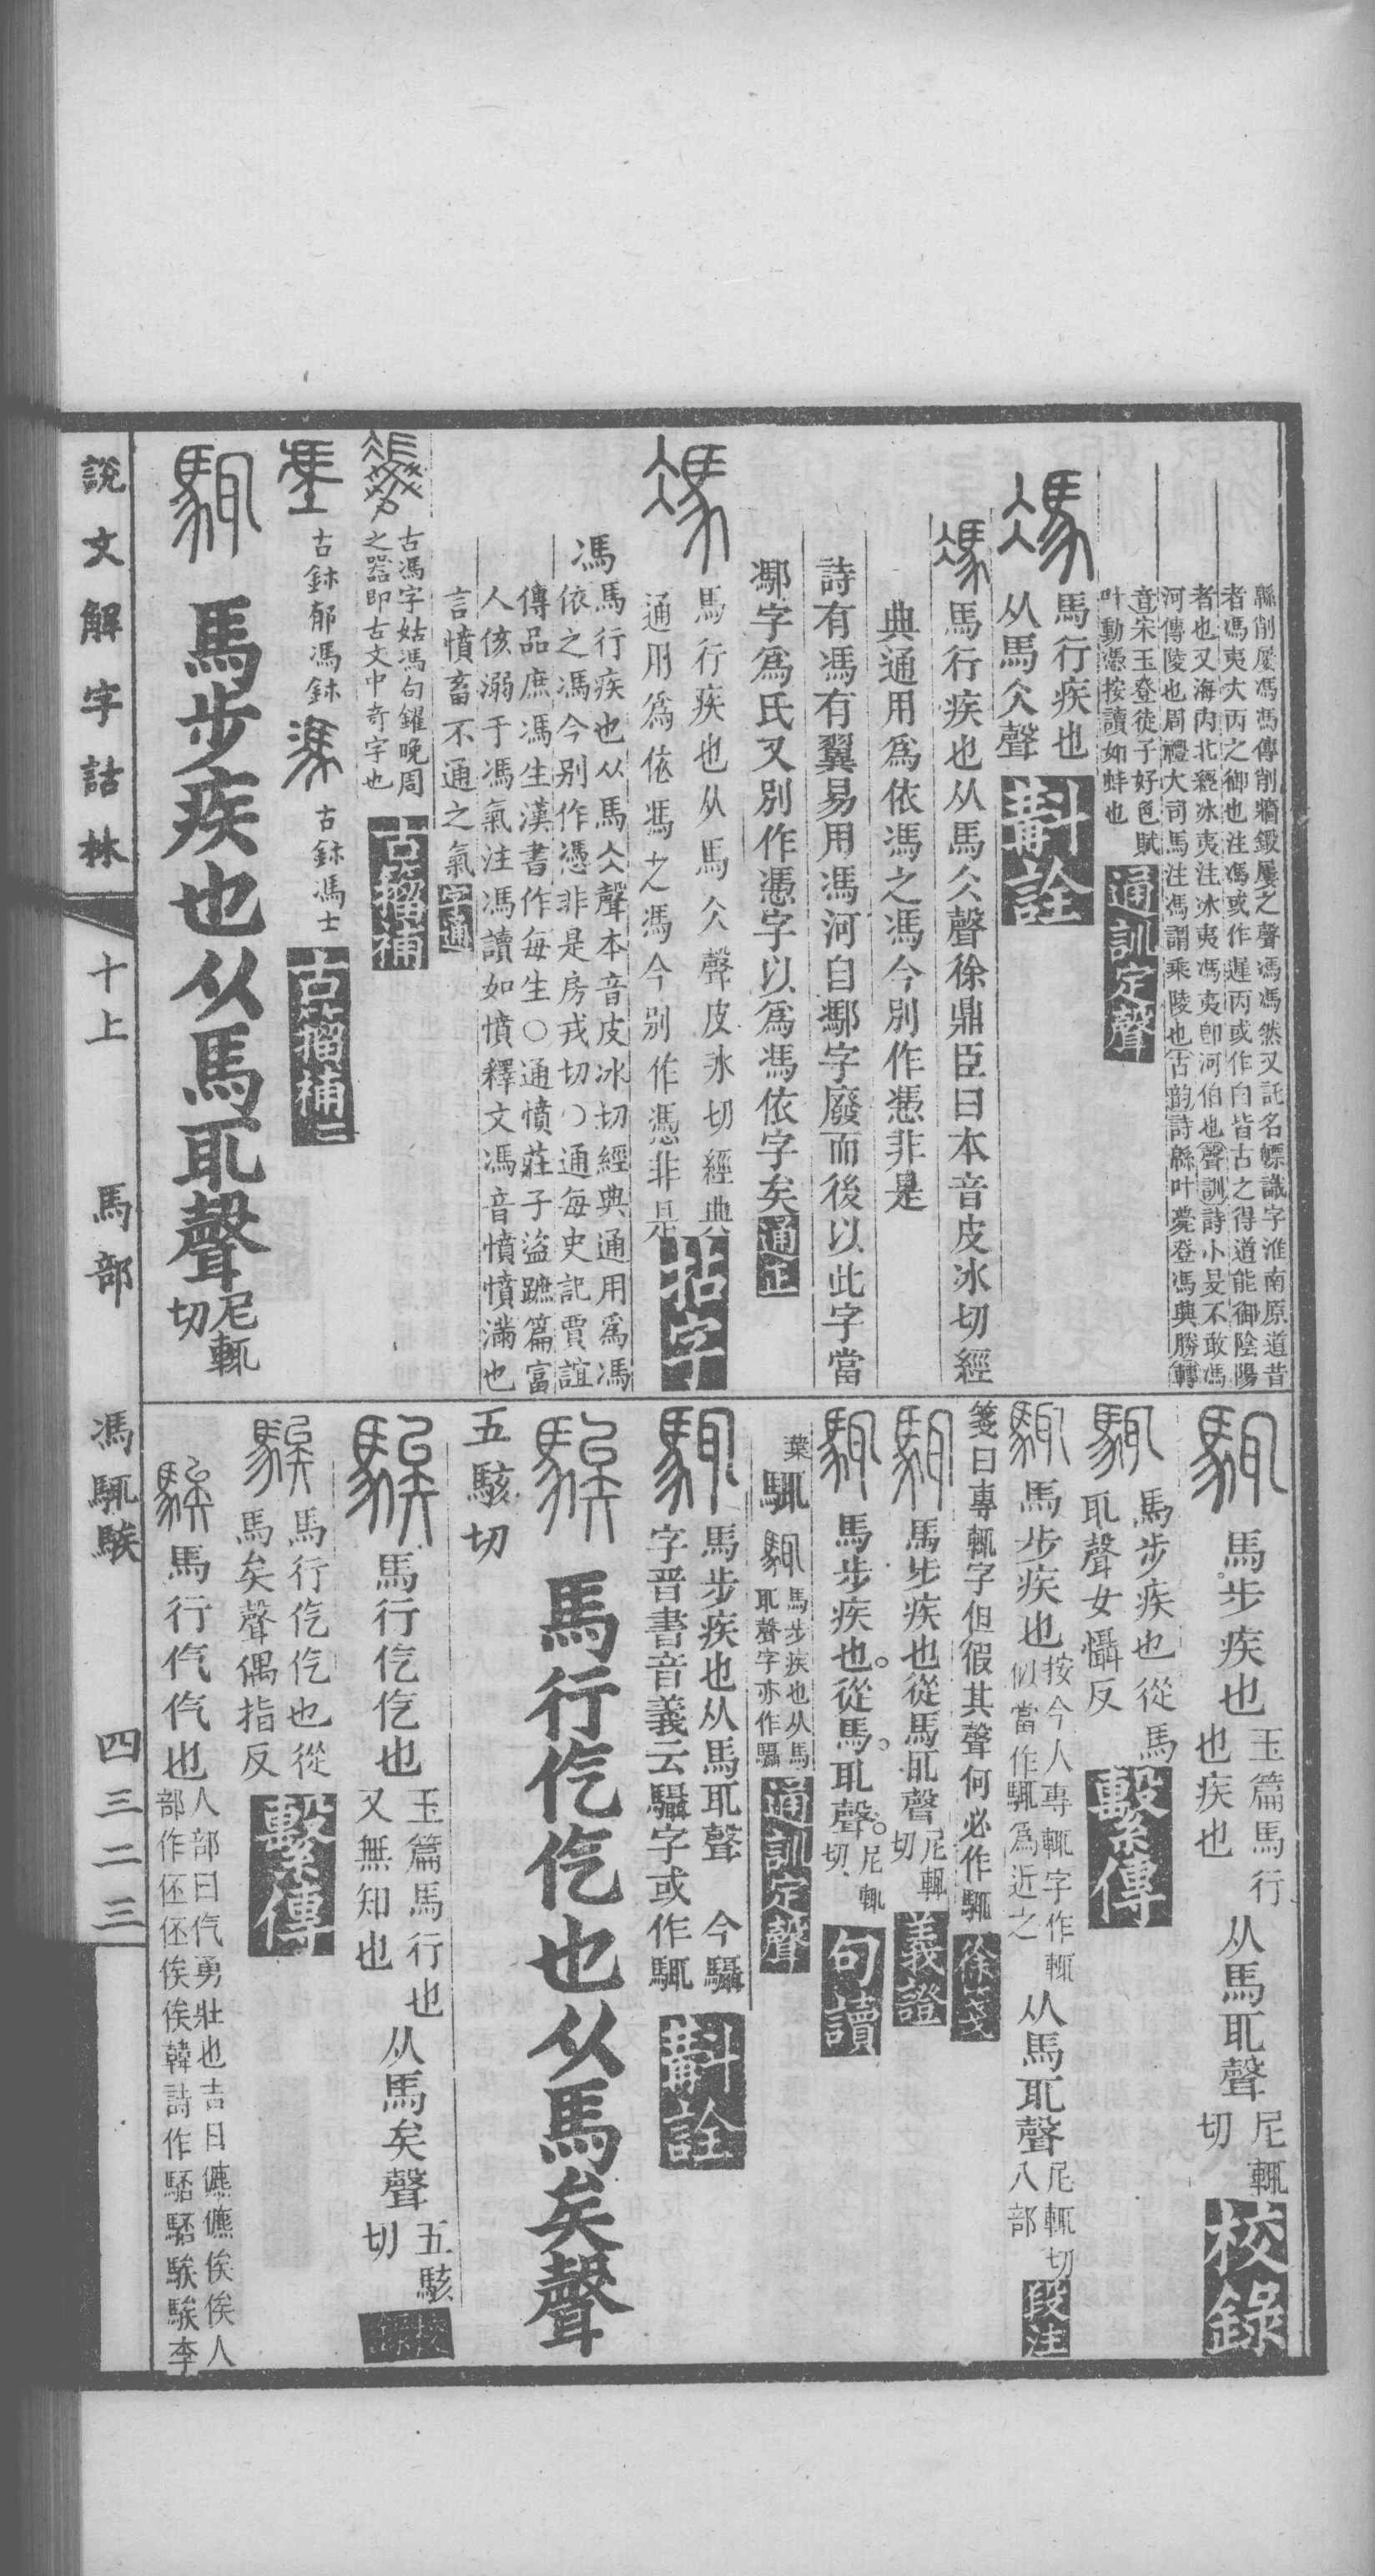 緜削屢馮馮傳削牆鍛屢之聲馮馮然又託名幖識字淮南原道昔
者馮夷大丙之御也注馮或作遲丙或作白皆古之得道能御陰陽
者也又海內北經冰夷注冰夷馮夷卽河伯也聲訓詩小旻不敢馮
河傳陵也周禮大司馬注馮謂乘陵也古韵詩緜叶薨登馮興勝轉
音宋玉登徒子好色賦
叶動馮按讀如蚌也
通訓定聲
馬行疾也
从馬仌聲
斠詮
馬行疾也从馬仌聲徐鼎臣曰本音皮冰切經
典通用爲依馮之馮今別作憑非是
詩有馮有翼易用馮河自鄸字廢而後以此字當
鄸字爲氏又別作憑字以爲馮依字矣
通正
馬行疾也从馬仌聲皮冰切經典
通用爲依馮之馮今別作憑非是
拈字
馮
馬行疾也从馬仌聲本音皮冰切經典通用爲馮
依之馮今別作憑非是房戎切〇通每史記賈誼
傳品庶馮生漢書作每生〇通憤莊子盜蹠篇富
人侅溺于馮氣注馮讀如憤釋文馮音憤憤滿也
言憤畜不通之氣
字通
古馮字姑馮句鑃晚周
之器卽古文中奇字也
古籀補
古鉥郁馮鉥
古鉥馮士
古籀補二
馬步疾也从馬耴聲
尼輒
切
馬步疾也
玉篇馬行
也疾也
从馬耴聲
尼輒
切
校錄
馬步疾也從馬
耴聲女懾反
繫傳
馬步疾也
按今人專輒字作輒
似當作䮕爲近之
从馬耴聲
尼輒切
八部
段注
箋曰專輒字但假其聲何必作䮕
徐箋
馬步疾也從馬耴聲
尼輒
切
義證
馬步疾也。從馬。耴聲。
尼輒
切
句讀
葉䮕
馬步疾也从馬
耴聲字亦作驦
通訓定聲
馬步疾也从馬耴聲 今驦
字晉書音義云驦字或作䮕
斠詮
馬行仡仡也从馬矣聲
五駭切
馬行仡仡也
玉篇馬行也
又無知也
从馬矣聲
五駭
切
校錄
馬行仡仡也從
馬矣聲偶指反
繫傳
馬行仡仡也
人部曰仡勇壯也吉日儦儦俟俟人
部作伾伾俟俟韓詩作駓駓騃騃李
說文解字詁林
十上
馬部
馮䮕騃
四三二三